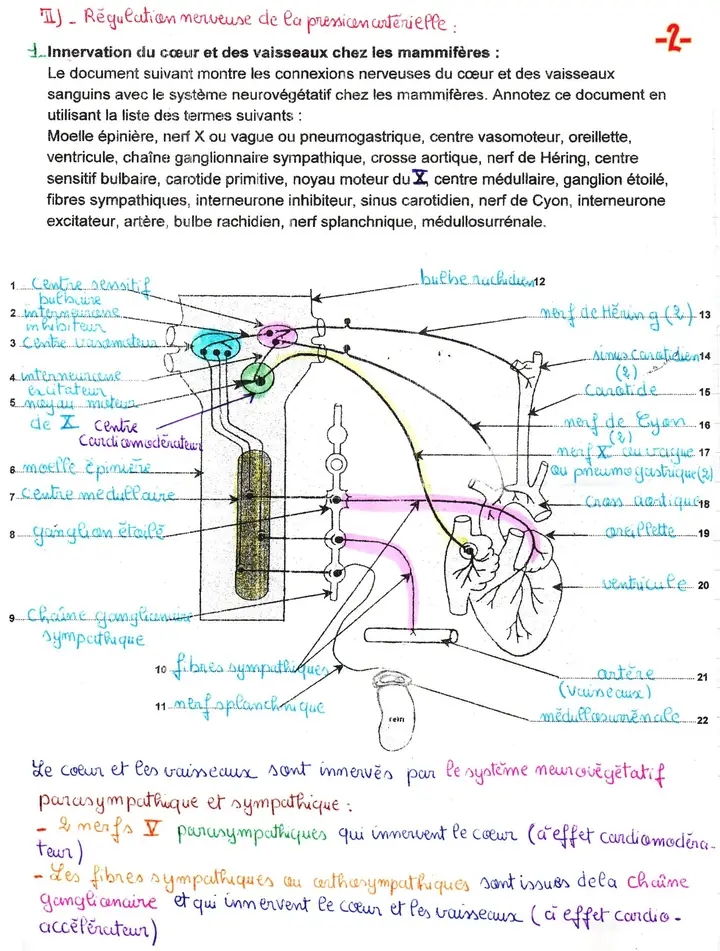 II)_ Régulation nerveuse de la pression artérielle :
-2-
1_ Innervation du cœur et des vaisseaux chez les mammifères :
Le document suivant montre les connexions nerveuses du cœur et des vaisseaux
sanguins avec le système neurovégétatif chez les mammifères. Annotez ce document en
utilisant la liste des termes suivants :
Moelle épinière, nerf X ou vague ou pneumogastrique, centre vasomoteur, oreillette,
ventricule, chaîne ganglionnaire sympathique, crosse aortique, nerf de Héring, centre
sensitif bulbaire, carotide primitive, noyau moteur du X, centre médullaire, ganglion étoilé,
fibres sympathiques, interneurone inhibiteur, sinus carotidien, nerf de Cyon, interneurone
excitateur, artère, bulbe rachidien, nerf splanchnique, médullosurrénale.
1 centre sensitif
bulbaire
2 interneurone
inhibiteur
3 Centre vasomoteur
4 interneurone
excitateur
5 noyau moteur
de X
centre
Cardiomodérateur
6 moelle épinière
7 centre médullaire
8 ganglion étoilé
9 chaîne ganglionaire
sympathique
10 fibres sympathiques
11 nerf splanchnique
bulbe rachidien 12
nerf de Héring (2) 13
sinus carotidien 14
(2)
Carotide 15
nerf de Cyon 16
(2)
nerf X ou vague 17
ou pneumogastrique (2)
Cross aortique 18
oreillette 19
ventricule 20
artère 21
(vaisseaux)
médullosurrénale 22
rein
Le cœur et les vaisseaux sont innervés par le système neurovégétatif
parasympathique et sympathique :
- 2 nerfs V parasympathiques qui innervent le cœur (à effet cardiomodéra-
teur)
- Les fibres sympathiques ou orthosympathiques sont issues de la chaîne
ganglionaire et qui innervent le cœur et les vaisseaux (à effet cardio-
accélérateur)